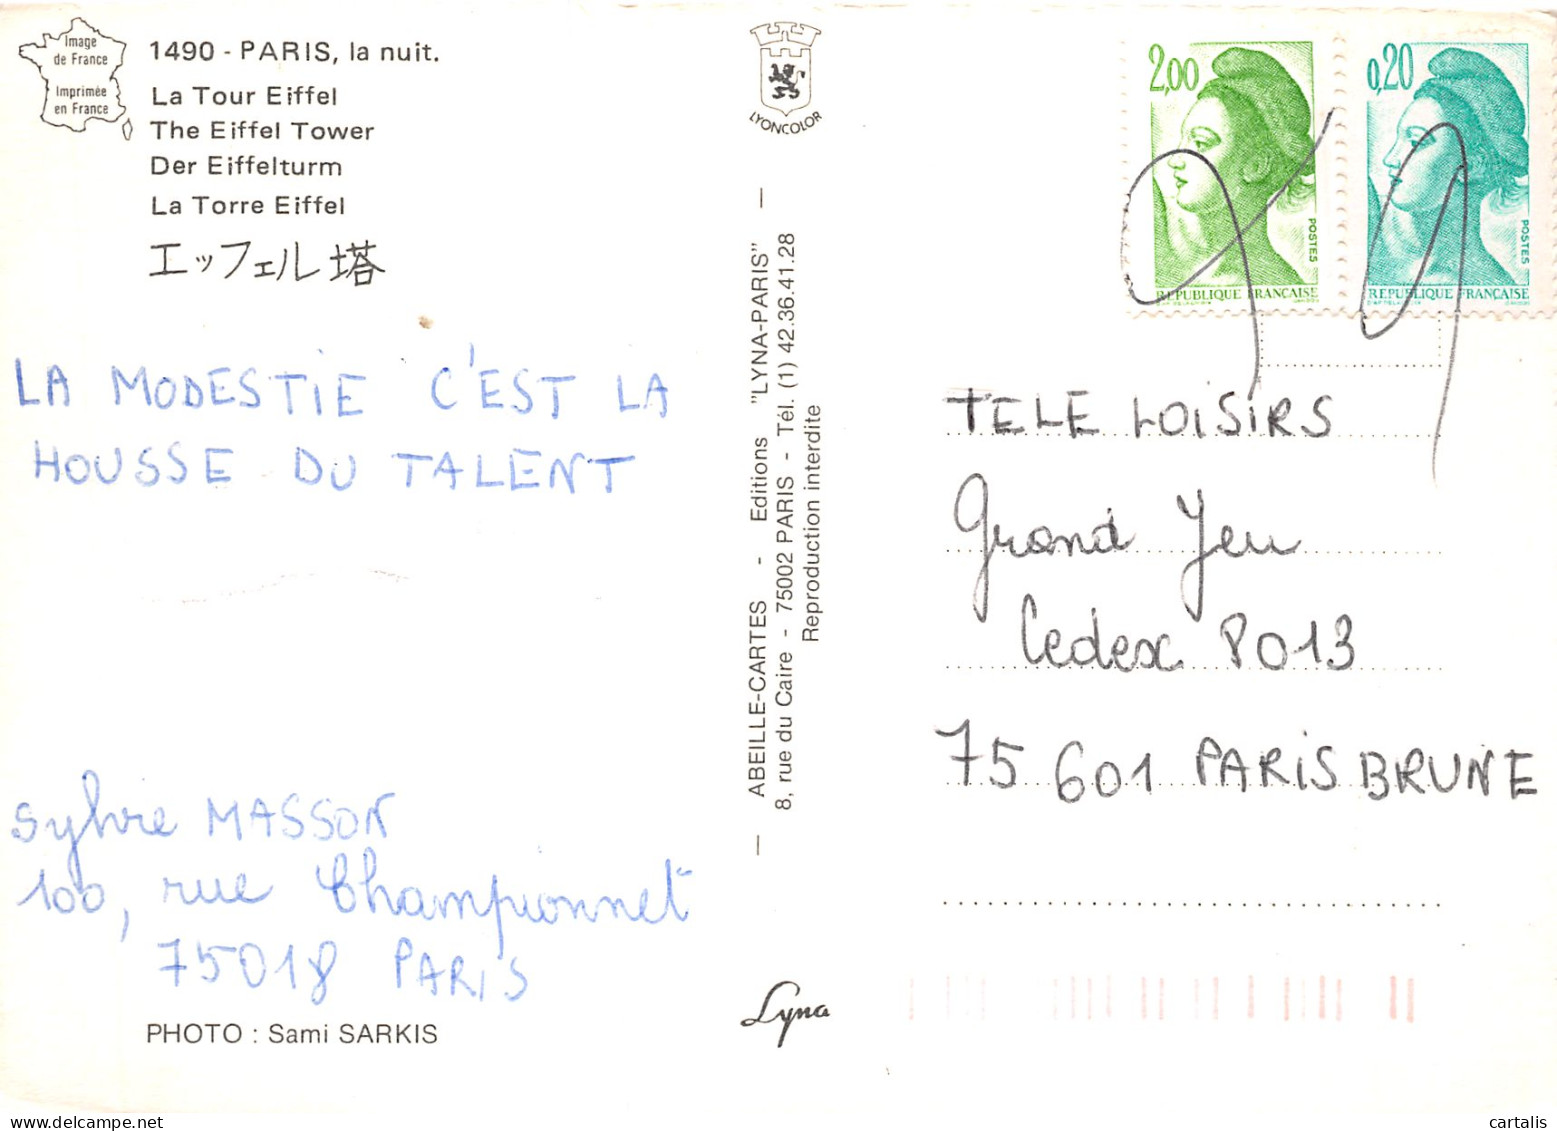 Image
de France
Imprimée
en France
1490 - PARIS, la nuit.
La Tour Eiffel
The Eiffel Tower
Der Eiffelturm
La Torre Eiffel
エッフェル塔
LA MODESTIE C'EST LA
HOUSSE DU TALENT
Sylvie MASSON
100, rue Championnet
75018 PARIS
PHOTO : Sami SARKIS
LYONCOLOR
ABEILLE-CARTES - Editions "LYNA-PARIS"
8, rue du Caire - 75002 PARIS - Tél. (1) 42.36.41.28
Reproduction interdite
Lyna
2,00
POSTES
REPUBLIQUE FRANÇAISE
0,20
POSTES
REPUBLIQUE FRANÇAISE
TELE LOISIRS
Grand Jeu
Cedex 8013
75 601 PARIS BRUNE
cartalis